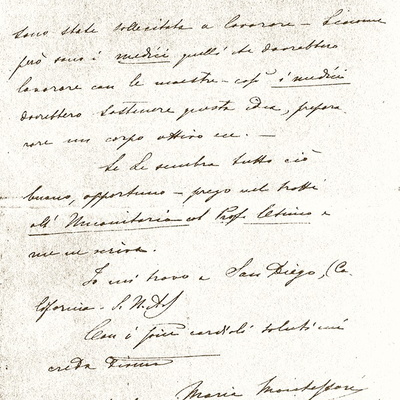 sono state sollecitate a lavorare - Siccome
però sono i medici quelli che dovrebbero
lavorare con le maestre - così i medici
dovrebbero sostenere questa idea, prepa
rare un corpo attivo ecc. -
Se Le sembra tutto ciò
buono, opportuno - prego nel
all' Umanitaria col Prof. e
me ne scriva.
Io mi trovo a San Diego, (Ca
lifornia - S. U. A.)
Con i più cordiali saluti mi
creda
Maria Montessori